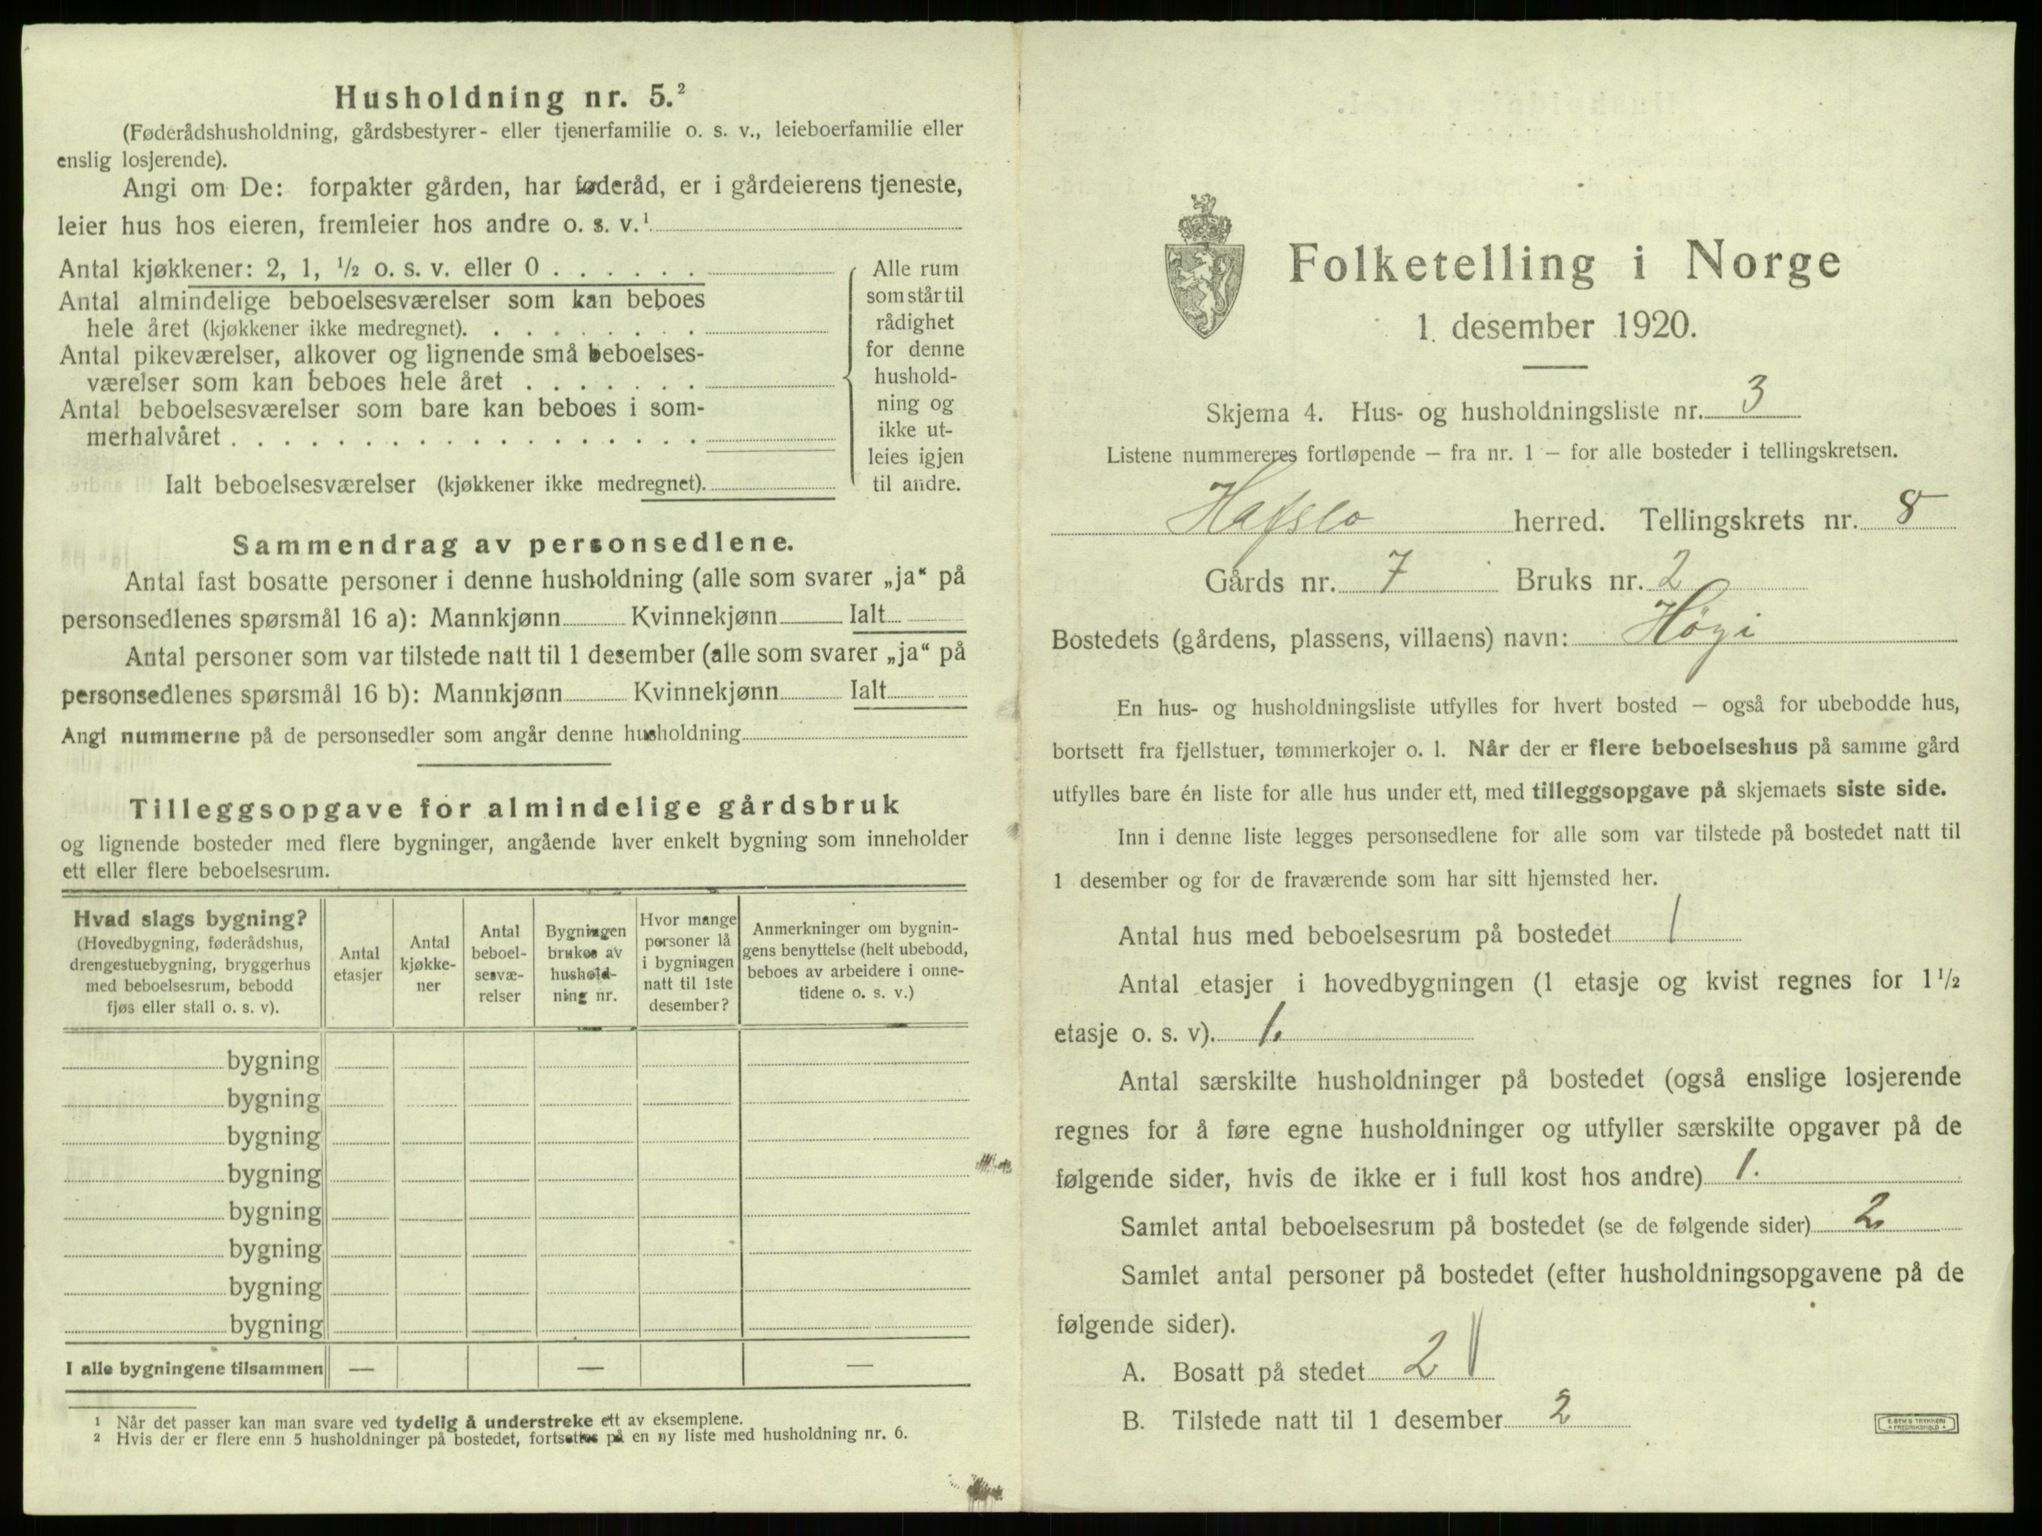 Husholdning nr. 5.²
(Føderådshusholdning, gårdsbestyrer- eller tjenerfamilie o. s. v., leieboerfamilie eller
enslig losjerende).
Angi om De: forpakter gården, har føderåd, er i gårdeierens tjeneste,
leier hus hos eieren, fremleier hos andre o. s. v.¹
Antal kjøkkener: 2, 1, ½ o. s. v. eller 0 . . . . . .
Antal almindelige beboelsesværelser som kan beboes
hele året (kjøkkener ikke medregnet). . . . . . . . .
Antal pikeværelser, alkover og lignende små beboelses-
værelser som kan beboes hele året . . . . . . .
Antal beboelsesværelser som bare kan beboes i som-
merhalvåret . . . . . . . . . . . . . . . . . .
Ialt beboelsesværelser (kjøkkener ikke medregnet).
Alle rum
som står til
rådighet
for denne
hushold-
ning og
ikke ut-
leies igjen
til andre.
Sammendrag av personsedlene.
Antal fast bosatte personer i denne husholdning (alle som svarer „ja“ på
personsedlenes spørsmål 16 a): Mannkjønn Kvinnekjønn Ialt
Antal personer som var tilstede natt til 1 desember (alle som svarer „ja“ på
personsedlenes spørsmål 16 b): Mannkjønn Kvinnekjønn Ialt
Angi nummerne på de personsedler som angår denne husholdning
Tilleggsopgave for almindelige gårdsbruk
og lignende bosteder med flere bygninger, angående hver enkelt bygning som inneholder
ett eller flere beboelsesrum.
Hvad slags bygning?
(Hovedbygning, føderådshus,
drengestuebygning, bryggerhus
med beboelsesrum, bebodd
fjøs eller stall o. s. v).
Antal
etasjer
Antal
kjøkke-
ner
Antal
beboel-
sesvæ-
relser
Bygningen
brukes av
hushold-
ning nr.
Hvor mange
personer lå
i bygningen
natt til 1ste
desember?
Anmerkninger om bygnin-
gens benyttelse (helt ubebodd,
beboes av arbeidere i onne-
tidene o. s. v.)
bygning
bygning
bygning
bygning
bygning
bygning
bygning
bygning
I alle bygningene tilsammen — — —
¹ Når det passer kan man svare ved tydelig å understreke ett av eksemplene.
² Hvis der er flere enn 5 husholdninger på bostedet, fortsettes på en ny liste med husholdning nr. 6.
Folketelling i Norge
1. desember 1920.
Skjema 4. Hus- og husholdningsliste nr. 3
Listene nummereres fortløpende – fra nr. 1 – for alle bosteder i tellingskretsen.
Hafslo herred. Tellingskrets nr. 8
Gårds nr. 7 Bruks nr. 2
Bostedets (gårdens, plassens, villaens) navn: Høgi
En hus- og husholdningsliste utfylles for hvert bosted – også for ubebodde hus,
bortsett fra fjellstuer, tømmerkojer o. l. Når der er flere beboelseshus på samme gård
utfylles bare én liste for alle hus under ett, med tilleggsopgave på skjemaets siste side.
Inn i denne liste legges personsedlene for alle som var tilstede på bostedet natt til
1 desember og for de fraværende som har sitt hjemsted her.
Antal hus med beboelsesrum på bostedet 1
Antal etasjer i hovedbygningen (1 etasje og kvist regnes for 1½
etasje o. s. v). 1.
Antal særskilte husholdninger på bostedet (også enslige losjerende
regnes for å føre egne husholdninger og utfyller særskilte opgaver på de
følgende sider, hvis de ikke er i full kost hos andre) 1.
Samlet antal beboelsesrum på bostedet (se de følgende sider) 2
Samlet antal personer på bostedet (efter husholdningsopgavene på de
følgende sider).
A. Bosatt på stedet 2
B. Tilstede natt til 1 desember 2